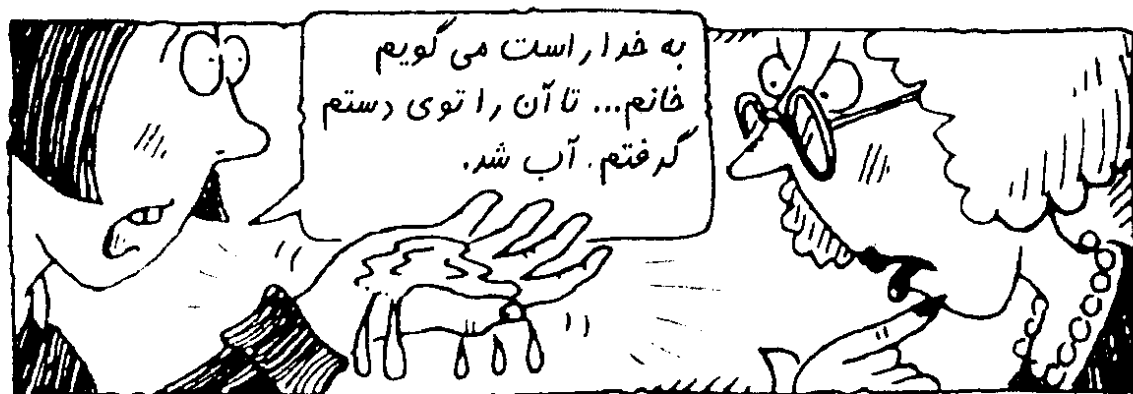 به خدا راست می گویم
خانم... تا آن را توی دستم
گرفتم. آب شد.